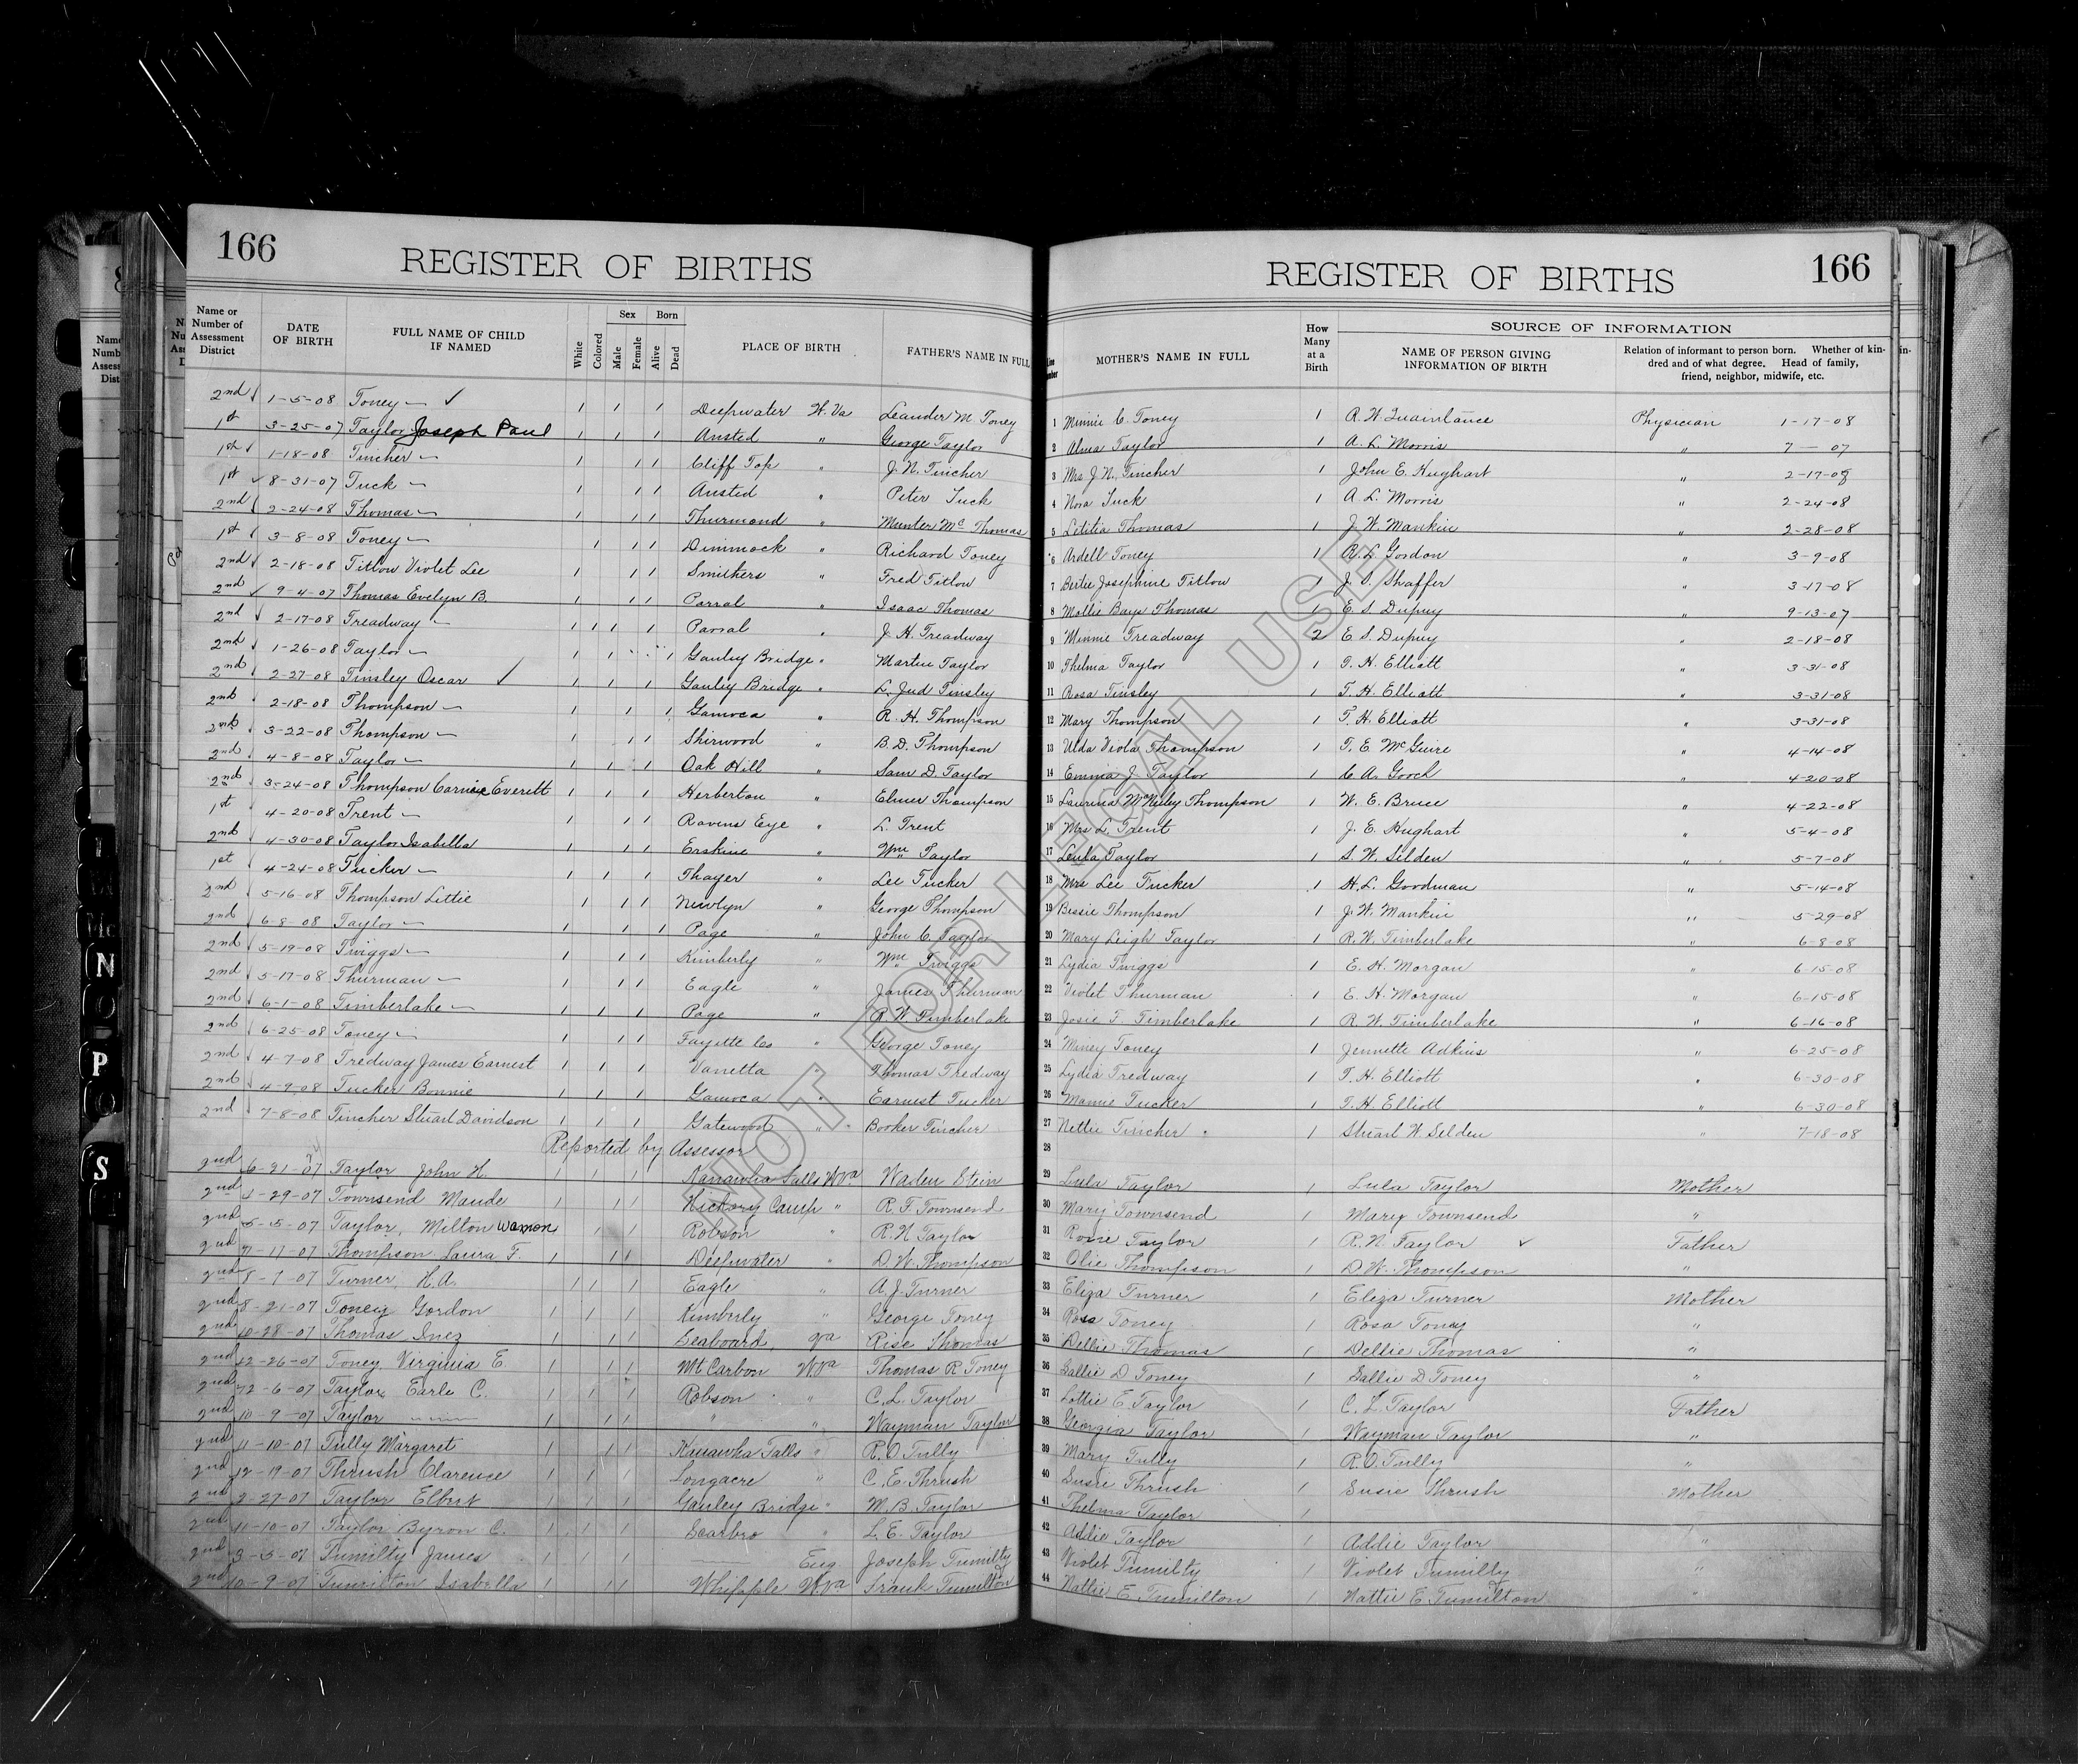 166 REGISTER OF BIRTHS
REGISTER OF BIRTHS 166
Name or Number of Assessment District
DATE OF BIRTH
FULL NAME OF CHILD IF NAMED
White
Colored
Sex
Male
Female
Born
Alive
Dead
PLACE OF BIRTH
FATHER'S NAME IN FULL
Line Number
MOTHER'S NAME IN FULL
How Many at a Birth
SOURCE OF INFORMATION
NAME OF PERSON GIVING INFORMATION OF BIRTH
Relation of informant to person born. Whether of kindred and of what degree. Head of family, friend, neighbor, midwife, etc.
2nd 1-5-08 Toney — ✓ 1 1 1 Deepwater W.Va Leander M. Toney 1 Minnie C. Toney 1 R. H. Quaintance Physician 1-17-08
1st 3-25-07 Taylor Joseph Paul 1 1 1 Ansted " George Taylor 2 Alma Taylor 1 A. L. Morris " 7 — 07
1st 1-18-08 Tincher — 1 1 1 Cliff Top " J. N. Tincher 3 Mrs J. N. Tincher 1 John E. Hughart " 2-17-08
1st 8-31-07 Tuck — 1 1 1 Ansted " Peter Tuck 4 Nora Tuck 1 A. L. Morris " 2-24-08
2nd 2-24-08 Thomas — 1 1 1 Thurmond " Munter Mc Thomas 5 Letitia Thomas 1 J. W. Mankin " 2-28-08
1st 3-8-08 Toney — 1 1 1 Dimmock " Richard Toney 6 Ardell Toney 1 A. L. Gordon " 3-9-08
2nd 2-18-08 Titlow Violet Lee 1 1 1 Smithers " Fred Titlow 7 Bertie Josephine Titlow 1 J. O. Shaffer " 3-17-08
2nd 9-4-07 Thomas Evelyn B. 1 1 1 Parral " Isaac Thomas 8 Mollie Baye Thomas 1 E. S. Dupuy " 9-13-07
2nd 2-17-08 Treadway — 1 1 1 1 Parral " J. H. Treadway 9 Minnie Treadway 2 E. S. Dupuy " 2-18-08
2nd 1-26-08 Taylor — 1 1 1 Gauley Bridge " Martin Taylor 10 Thelma Taylor 1 T. H. Elliott " 3-31-08
2nd 2-27-08 Tinsley Oscar ✓ 1 1 1 Gauley Bridge " L. Jud Tinsley 11 Rosa Tinsley 1 T. H. Elliott " 3-31-08
2nd 2-18-08 Thompson — 1 1 1 Gamoca " R. H. Thompson 12 Mary Thompson 1 T. H. Elliott " 3-31-08
2nd 3-22-08 Thompson — 1 1 1 Shirwood " B. D. Thompson 13 Ulda Viola Thompson 1 T. E. McGuire " 4-14-08
2nd 4-8-08 Taylor — 1 1 1 Oak Hill " Sam D. Taylor 14 Emma J. Taylor 1 C. A. Gooch " 4-20-08
2nd 3-24-08 Thompson Carnie Everett 1 1 1 Herberton " Elmer Thompson 15 Laurina McNiely Thompson 1 W. E. Bruce " 4-22-08
1st 4-20-08 Trent — 1 1 1 Ravens Eye " L. Trent 16 Mrs L. Trent 1 J. E. Hughart " 5-4-08
2nd 4-30-08 Taylor Isabella 1 1 1 Erskine " Wm Taylor 17 Leula Taylor 1 S. W. Selden " 5-7-08
1st 4-24-08 Tucker — 1 1 1 Thayer " Lee Tucker 18 Mrs Lee Tucker 1 H. L. Goodman " 5-14-08
2nd 5-16-08 Thompson Littie 1 1 1 Newlyn " George Thompson 19 Bessie Thompson 1 J. W. Mankin " 5-29-08
2nd 6-8-08 Taylor — 1 1 1 Page " John C. Taylor 20 Mary Leigh Taylor 1 R. W. Timberlake " 6-8-08
2nd 5-19-08 Twiggs — 1 1 1 Kimberly " Wm Twiggs 21 Lydia Twiggs 1 E. H. Morgan " 6-15-08
2nd 5-17-08 Thurman — 1 1 1 Eagle " James Thurman 22 Violet Thurman 1 E. H. Morgan " 6-15-08
2nd 6-1-08 Timberlake — 1 1 1 Page " R. W. Timberlake 23 Josie T. Timberlake 1 R. W. Timberlake " 6-16-08
2nd 6-25-08 Toney — 1 1 1 Fayette Co " George Toney 24 Miney Toney 1 Jennette Adkins " 6-25-08
2nd 4-7-08 Tredway James Earnest 1 1 1 Vanetta Thomas Tredway 25 Lydia Tredway 1 T. H. Elliott " 6-30-08
2nd 4-9-08 Tucker Bonnie 1 1 1 Gamoca " Earnest Tucker 26 Mamie Tucker 1 T. H. Elliott " 6-30-08
2nd 7-8-08 Tincher Stuart Davidson 1 1 1 Gatewood " Booker Tincher 27 Nettie Tincher 1 Stuart W. Selden " 7-18-08
Reported by Assessor 28
2nd 6-21-07 Taylor John H. 1 1 1 Kanawha Falls W Va Waden Stein 29 Lula Taylor 1 Lula Taylor Mother
2nd 4-29-07 Townsend Maude 1 1 1 Hickory Camp " R. F. Townsend 30 Mary Townsend 1 Mary Townsend "
2nd 5-15-07 Taylor, Milton Wamon 1 1 Robson " R. N. Taylor 31 Rosie Taylor 1 R. N. Taylor ✓ Father
2nd 7-17-07 Thompson Laura F. 1 1 1 Deepwater " D. W. Thompson 32 Olie Thompson 1 D. W. Thompson "
2nd 8-7-07 Turner, H. A. 1 1 1 Eagle " A. J. Turner 33 Eliza Turner 1 Eliza Turner Mother
2nd 8-21-07 Toney Gordon 1 1 1 Kimberly " George Toney 34 Rosa Toney 1 Rosa Toney "
2nd 10-28-07 Thomas Inez 1 1 1 Seaboard, Va Rise Thomas 35 Dellie Thomas 1 Dellie Thomas "
2nd 12-26-07 Toney Virginia E. 1 1 1 Mt Carbon W Va Thomas R Toney 36 Sallie D Toney 1 Sallie D Toney "
2nd 12-6-07 Taylor Earle C. 1 1 1 Robson " C. L. Taylor 37 Lottie E. Taylor 1 C. L. Taylor Father
2nd 10-9-07 Taylor 1 1 1 " " Wayman Taylor 38 Georgia Taylor 1 Wayman Taylor "
2nd 11-10-07 Tully Margaret 1 1 1 Kanawha Falls " R. O. Tully 39 Mary Tully 1 R. O. Tully "
2nd 12-19-07 Thrush Clarence 1 1 1 Longacre " C. E. Thrush 40 Susie Thrush 1 Susie Thrush Mother
2nd 2-27-07 Taylor Elbert 1 1 1 Gauley Bridge " W. B. Taylor 41 Thelma Taylor 1
2nd 11-10-07 Taylor Byron C. 1 1 1 Scarbro " L. E. Taylor 42 Addie Taylor 1 Addie Taylor "
2nd 3-5-07 Tumilty James 1 1 1 Eng. Joseph Tumilty 43 Violet Tumilty 1 Violet Tumilty "
2nd 10-9-07 Isabella 1 1 1 Whipple W Va Frank Tumilton 44 Nattie E. Tumilton 1 Nattie E. Tumilton "
NOT FOR LEGAL USE
Mc
N
O
P
S